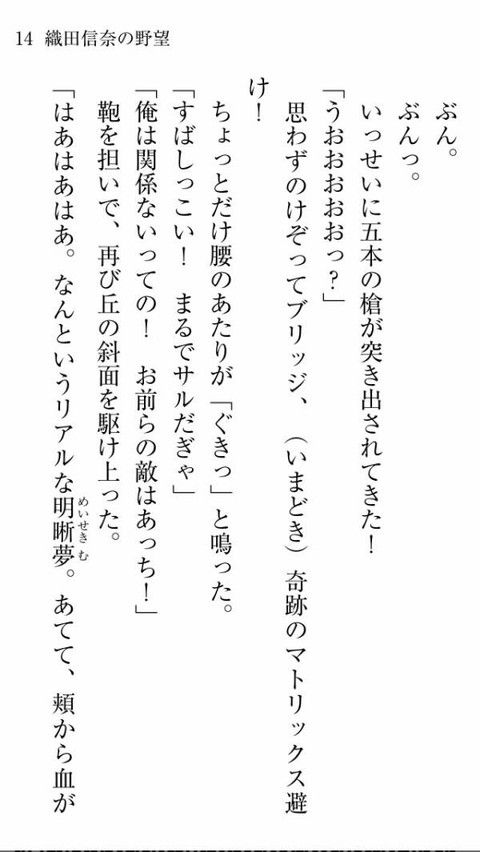 14 織田信奈の野望
ぶん。
ぶんっ。
いっせいに五本の槍が突き出されてきた！
「うおおおおおっ？」
思わずのけぞってブリッジ、（いまどき）奇跡のマトリックス避
け！
ちょっとだけ腰のあたりが「ぐきっ」と鳴った。
「すばしっこい！　まるでサルだぎゃ」
「俺は関係ないっての！　お前らの敵はあっち！」
鞄を担いで、再び丘の斜面を駆け上った。
「はあはあはあ。なんというリアルな明晰夢。あてて、頬から血が
めいせきむ